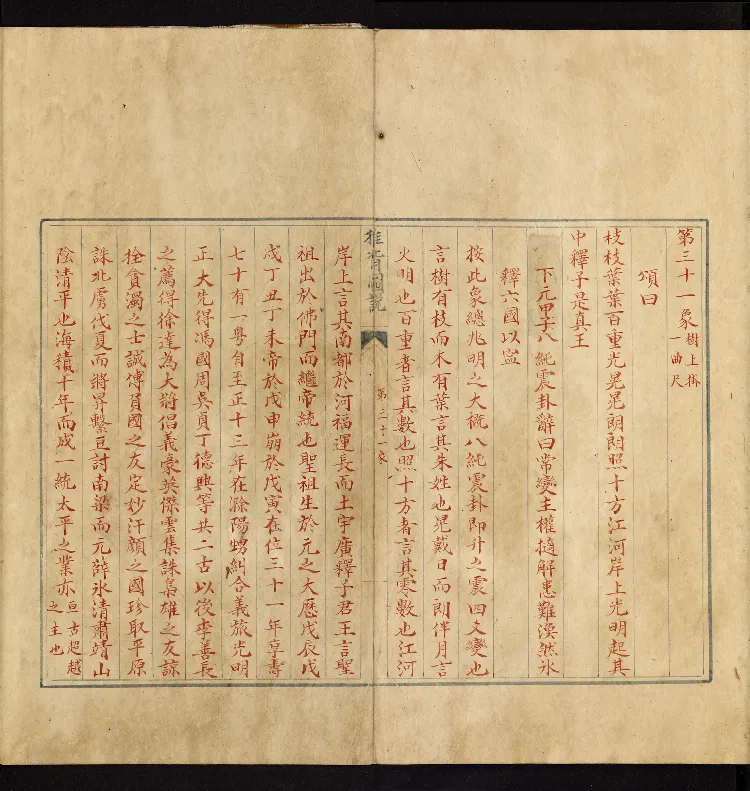 第三十一象 樹上掛一曲尺
頌曰
枝枝葉葉百重光晃晃朗朗照十方江河岸上光明起其
中釋子是真王
下元甲子八純震卦辭曰常變主權撻解患難渙然冰
釋六國以寧
按此象總兆明之大概八純震卦即升之震四爻變也
言樹有枝而木有葉言其朱姓也晃戴日而朗伴月言
火明也百重者言其數也照十方者言其零數也江河
推背圖說
第三十一象
岸上言其南都於河福運長而土宇廣釋子君王言聖
祖出於佛門而繼帝統也聖祖生於元之大歷戊辰戊
戌丁丑丁未帝於戊申崩於戊寅在位三十一年享壽
七十有一粵自至正十三年在滁陽甥糾合義旅光明
正大先得馮國周吳貞丁德興等共二古以後李善長
之薦得徐達為大將倡義豪英傑雲集誅梟雄之友諒
拴貪濁之士誠傅員國之友定妙汗顏之國珍取平原
誅北虜代夏而將昇繫豆討南梁而元薛氷清肅靖山
陰清平也海積十年而成一統太平之業亦亘古起越之主也